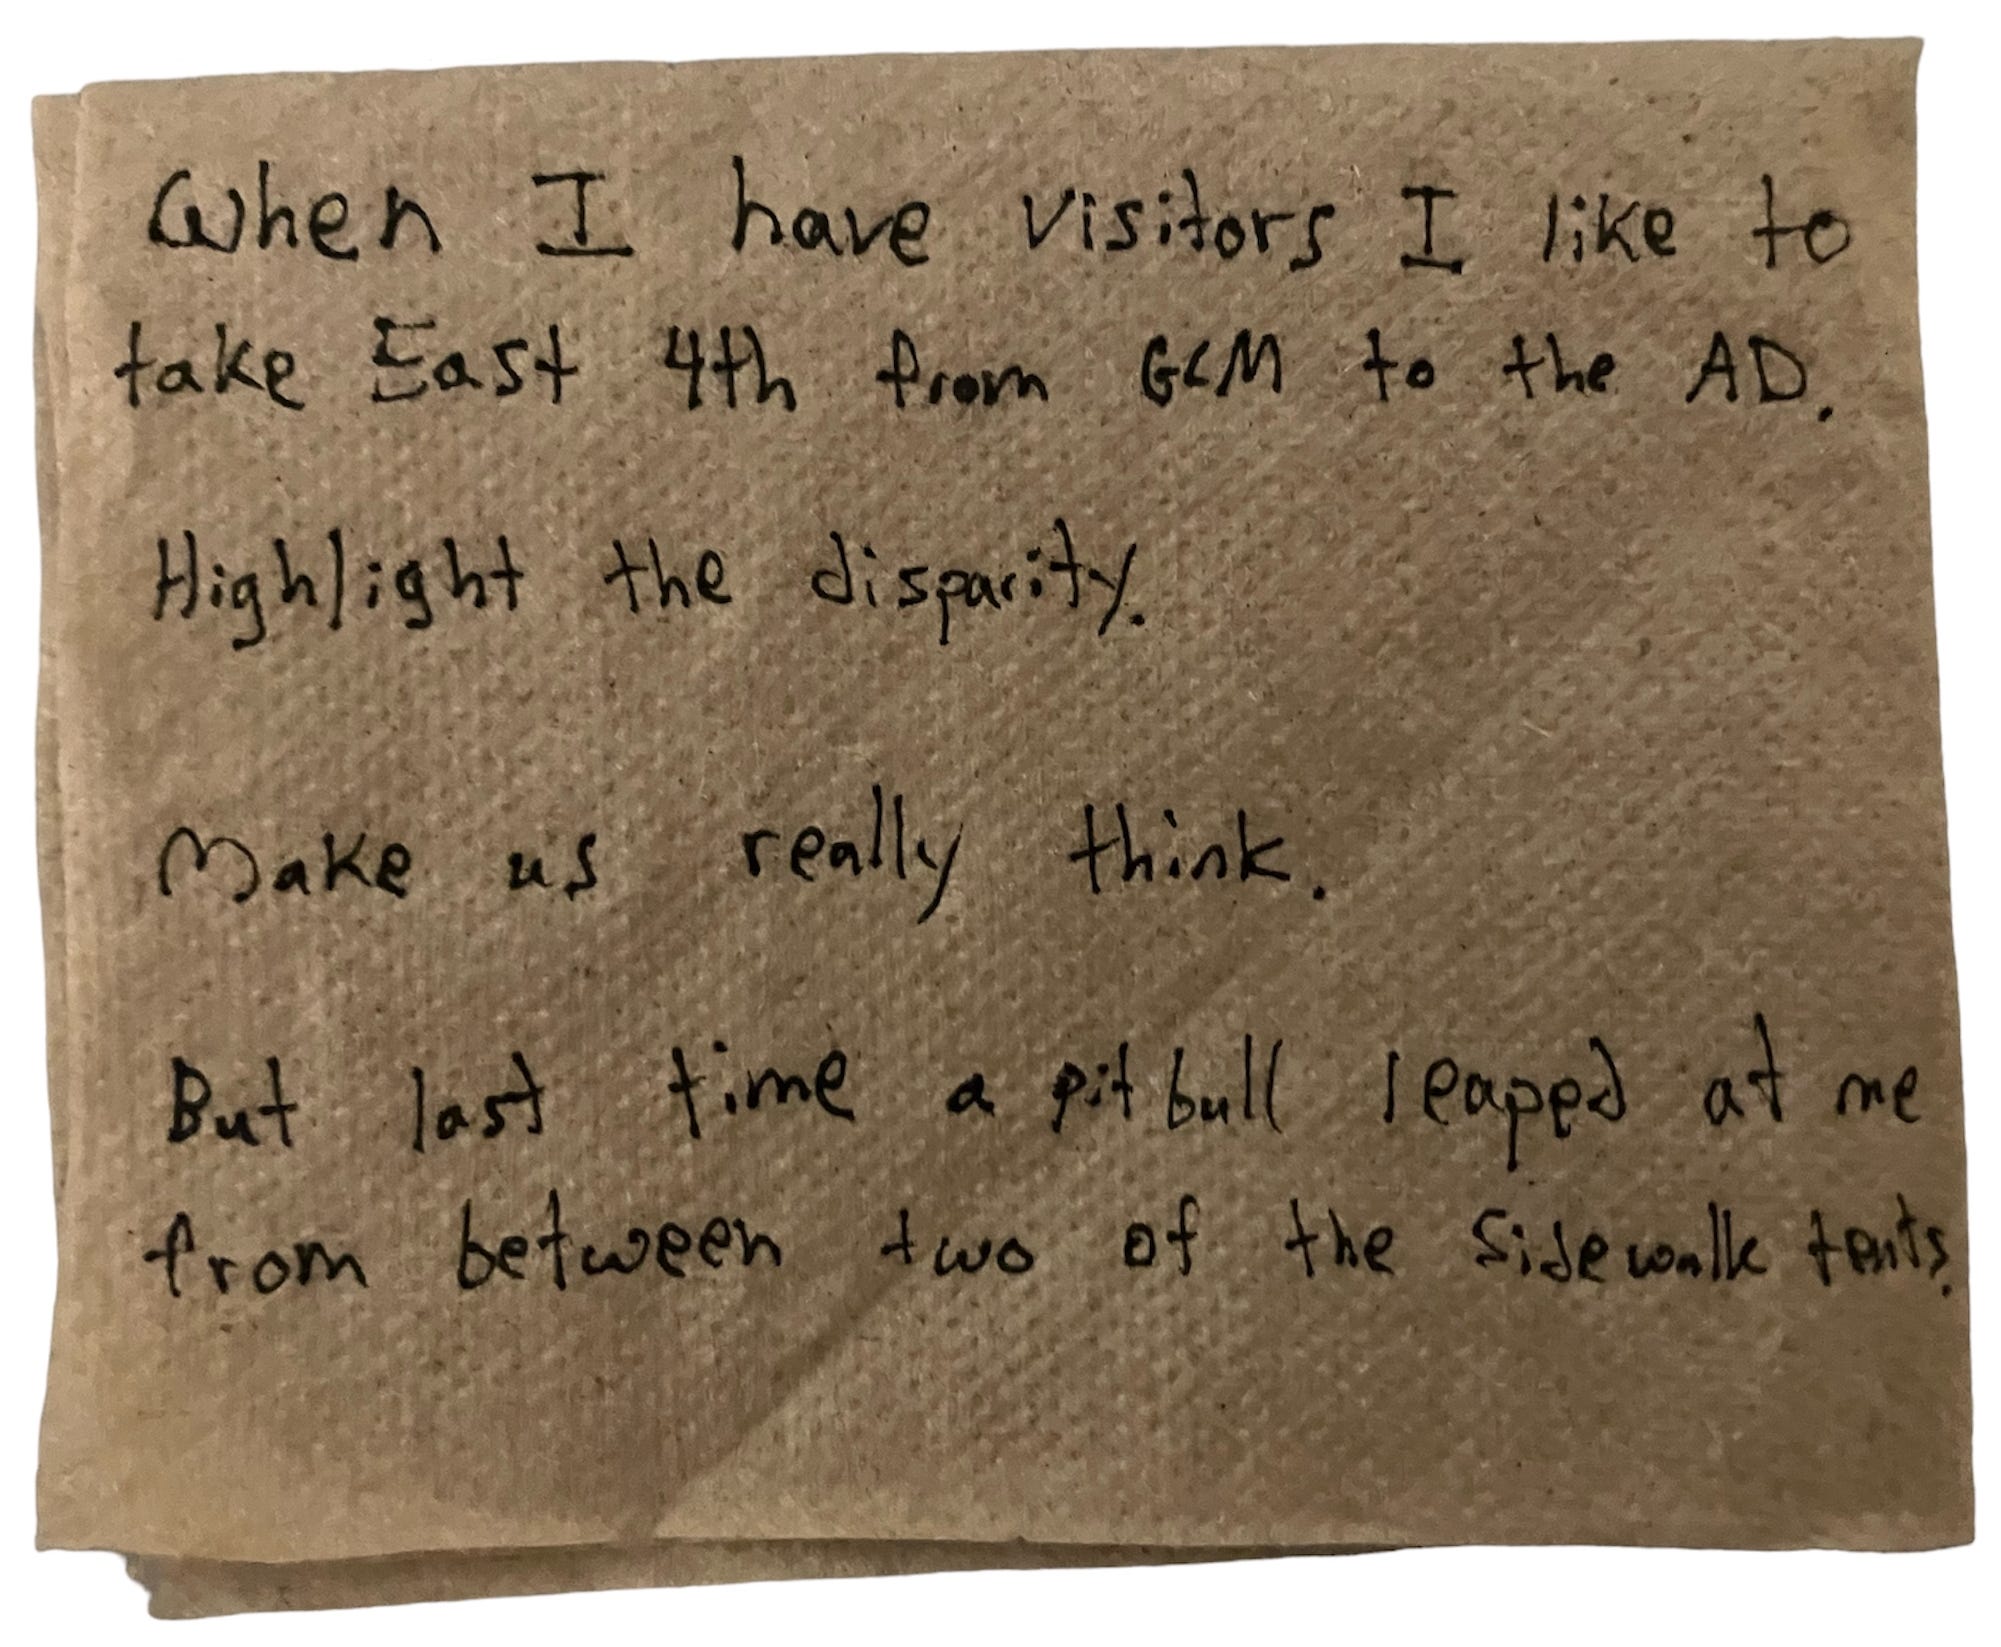 When I have visitors I like to
take East 4th from GCM to the AD.
Highlight the disparity.
Make us really think.
But last time a pit bull leaped at me
from between two of the sidewalk tents.